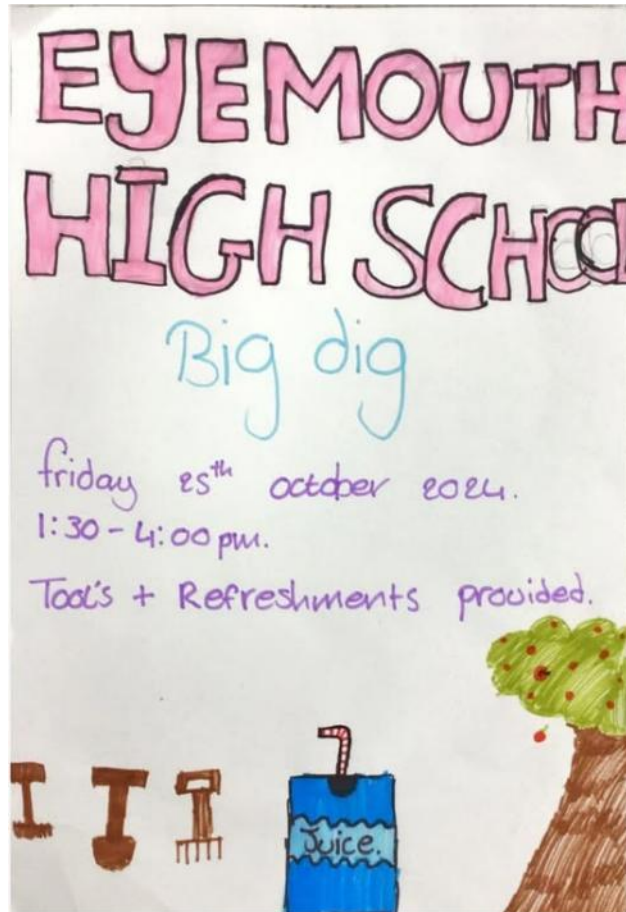 EYEMOUTH
HIGH SCHOOL
Big dig
friday 25th october 2024.
1:30-4:00 pm.
Tool's + Refreshments provided.
Juice.